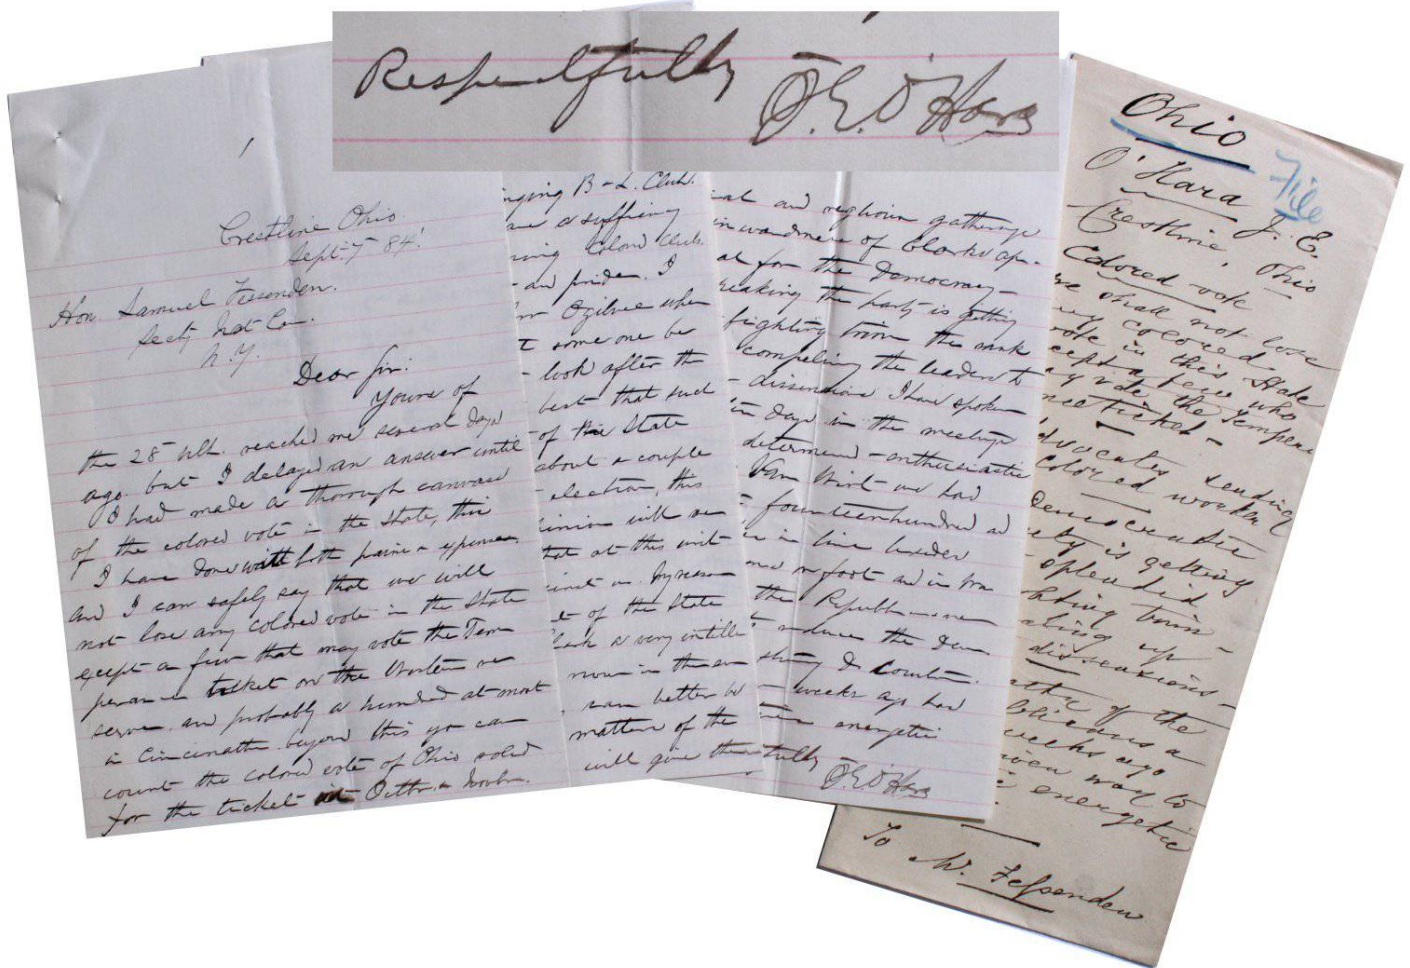 Respectfully
J. E. O'Hara
Crestline Ohio.
Sept. 7 84'
Hon. Samuel Fessenden.
Secty Nat Com.
N.Y.
Dear Sir:
Yours of
the 28 ult. reached me several days
ago. but I delayed an answer until
I had made a thorough canvass
of the colored vote in the State, this
I have done with both pains & expense
and I can safely say that we will
not lose any colored vote in the State
except a few that may vote the Tem
perance ticket on the Western re
serve. and probably a hundred at most
in Cincinnatti. beyond this you can
count the colored vote of Ohio solid
for the ticket in Octbr. & Novbr.
nging B & L. Club.
are a suffering
ning Colored Club.
and pride. I
Ogilvee when
some one be
look after the
best that such
of the State
about a couple
election, this
inion will re
that at this writ
inst us. by reason
of the State
Clark a very intelli
now in the em
can better be
matters of the
will give the
and religious gatherings
inwardness of Clarks ap-
for the Democracy-
reaking the party is getting
fighting trim the rank
compeling the leaders to
dissensions I have spoken
days in the meetings
determined - enthusiastic
Van Wirt we had
fourteen hundred ad
in line besides
on foot and in
the Republicans
reduce the Dem
County.
weeks ago had
energetic
tfully
J. E. O'Hara
Ohio
File
O'Hara J. E.
Crestline, Ohio
Colored vote
we shall not lose
any colored
vote in this State
except a few who
may vote the Temper
ance ticket-
Advocates sending
Colored worker
Democratic
party is getting
splendid
fighting trim
aling up
dissensions-
apathy of the
Republicans a
weeks ago
given way to
energetic
To Mr. Fessenden